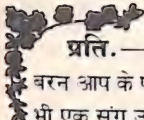 प्रति.—
बरन आप के प
भी एक संग ज